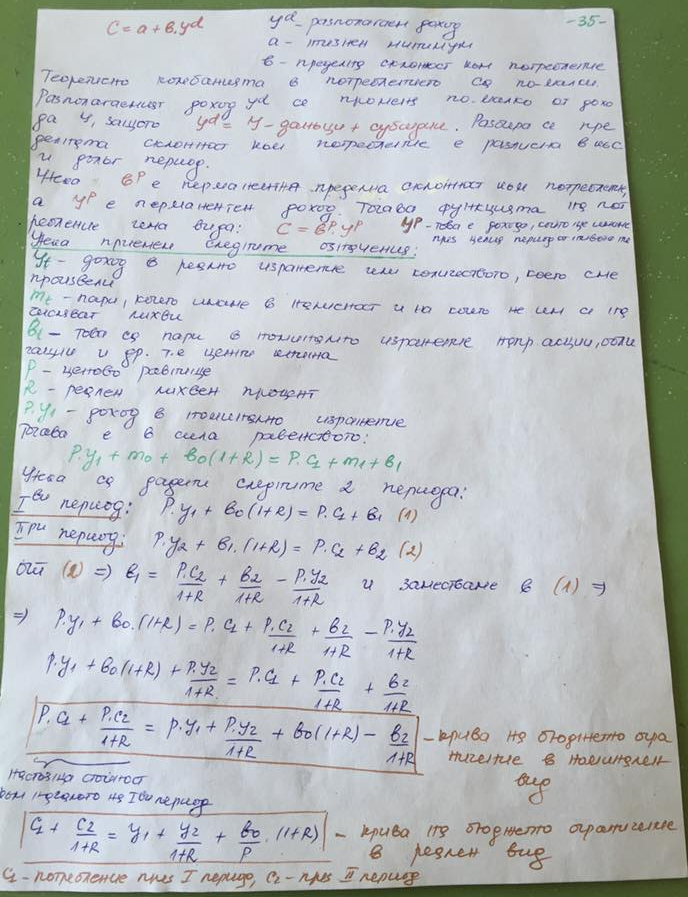 C = a + в.yd
yd - разполагаем доход
-35-
a - жизнен минимум
в - пределна склонност към потребление
Теоретично комбанията в потреблението са по-малки.
Разполагаемият доход yd се променя по-малко от дохо
да Y, защото yd = Y - данъци + субсидии. Разбира се пре
делната склонност към потребление е различна в къс
и дълъг период.
Нека вᴾ е перманентна пределна склонност към потребление,
а yᴾ е перманентен доход. Тогава функцията на пот
ребление има вида: C = вᴾ.yᴾ yᴾ - това е дохода, който ще имаме
през целия период от
Нека приемем следните означения:
Yt - доход в реално изражение или количеството, което сме
произвели
mt - пари, които имаме в наличност и на които не им се на
числяват лихви
вt - това са пари в номинално изражение напр акции, обли
гации и др. т.е ценни книжа
P - ценово равнище
R - реален лихвен процент
P.y1 - доход в номинално изражение
Тогава е в сила равенството:
P.y1 + m0 + в0(1+R) = P.C1 + m1 + в1
Нека са дадени следните 2 периода:
Iви период: P.y1 + в0(1+R) = P.C1 + в1 (1)
IIри период: P.y2 + в1.(1+R) = P.C2 + в2 (2)
от (2) => в1 = P.C2/1+R + в2/1+R - P.y2/1+R и заместваме в (1) =>
=> P.y1 + в0.(1+R) = P.C1 + P.C2/1+R + в2/1+R - P.y2/1+R
P.y1 + в0(1+R) + P.y2/1+R = P.C1 + P.C2/1+R + в2/1+R
P.C1 + P.C2/1+R = P.y1 + P.y2/1+R + в0(1+R) - в2/1+R - крива на бюджетно огра
ничение в номинален
вид
настояща стойност
към началото на Iви период
C1 + C2/1+R = y1 + y2/1+R + в0/P . (1+R) - крива на бюджетно ограничение
в реален вид
C1 - потребление през I период, C2 - през II период